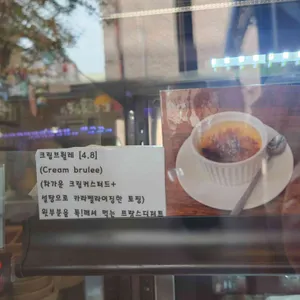 크림브륄레 [4.8]
(Cream brulee)
(차가운 크림커스터드+
설탕으로 카라멜라이징한 토핑)
윗부분을 톡!깨서 먹는 프랑스디저트